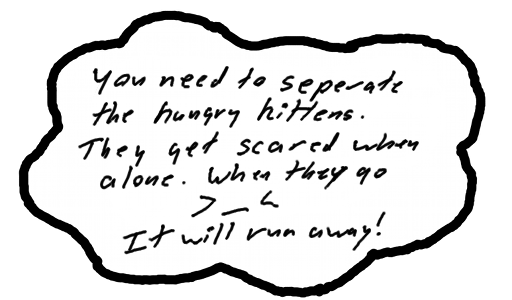 You need to seperate
the hungry kittens.
They get scared when
alone. When they go
>_<
It will run away!